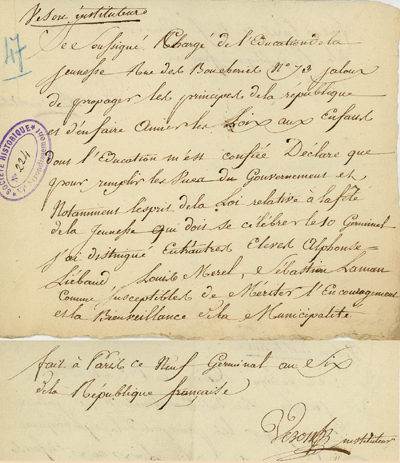 Veson instituteur
47
Je Sousigné Chargé de l'Education de la
jeunesse Rue des Boucheries N° 73 jaloux
de propager les principes de la republique
et d'en faire Aimer les Loix aux Enfans
dont l'Education m'est confiée Déclare que
pour remplir les Vues du Gouvernement et
Notamment l'esprit de la Loi relative à la fête
de la jeunesse qui doit se célébrer le 10 Germinal
j'ai distingué Entr'autres Eleves Alphonse
Liébaud Louis Merel, Sébastien Laman
Comme susceptibles de Meriter l'Encouragement
et la Bienveillance de la Municipalité
fait à Paris ce Neuf Germinal an Six
de la République française
Veson instituteur
SOCIÉTÉ HISTORIQUE
N° 224